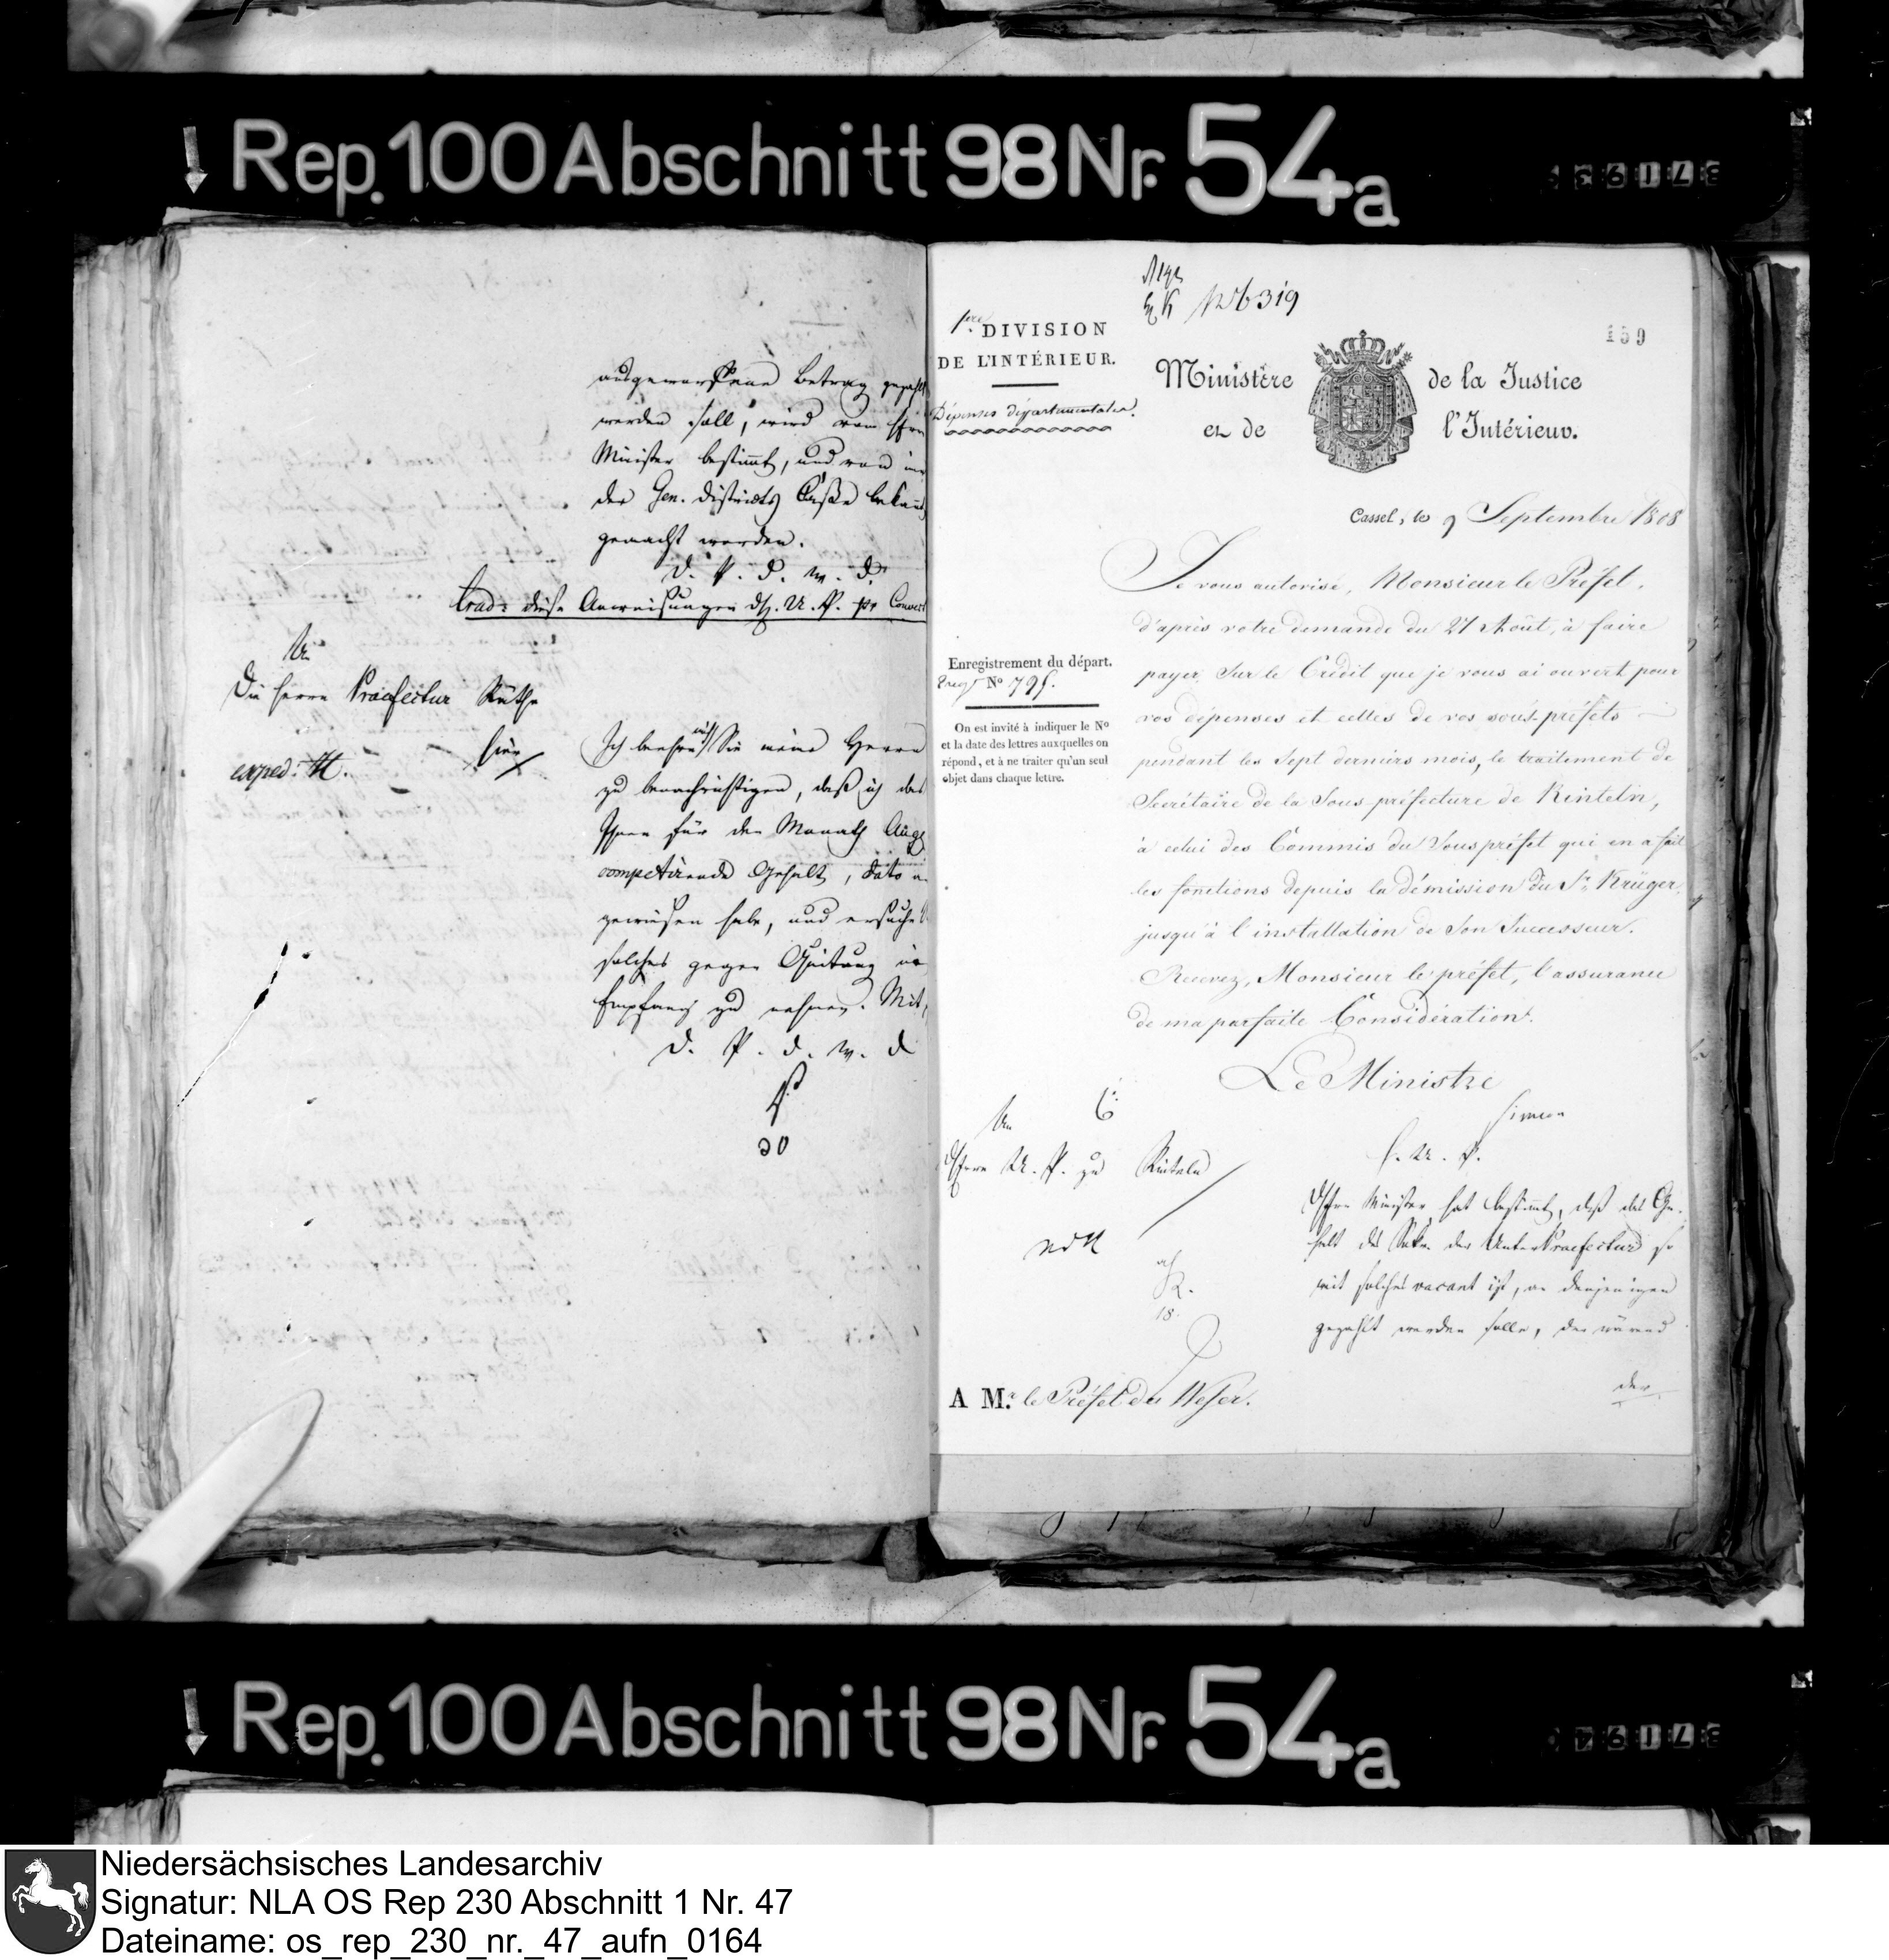 Rep. 100 Abschnitt 98 Nr. 54a
ausgeworfene Betrag gezahlt
werden soll, wird vom Hrn
Minister bestimt, und von
der Gen. Districts Casse bekannt
gemacht werden.
D. P. d. W. D.
trad: diese Anweisungen d. U. P. pr Couvert
An
Die Herrn Praefectur Räthe
hier
exped. H.
Ich beehre mich Sie meine Herrn
zu benachrichtigen, daß ich das
Ihnen für den Monath Aug
competirende Gehalt, dato
gewiesen habe, und ersuche
solches gegen Quitung in
Empfang zu nehmen. Mit
D. P. d. W. d
1re DIVISION
DE L'INTÉRIEUR.
Dépenses départementales.
No 6319
159
Ministère de la Justice
et de l'Intérieur.
Cassel, le 9 Septembre 1808
Je vous autorise, Monsieur le Préfet,
d'après votre demande du 27 Août, à faire
payer, Sur le Crédit que je vous ai ouvert pour
vos dépenses et celles de vos sous-préfets
pendant les Sept derniers mois, le traitement de
Secrétaire de la Sous-préfecture de Rinteln,
à celui des Commis du Souspréfet qui en a fait
les fonctions depuis la démission du Sr. Krüger,
jusqu'à l'installation de Son Successeur.
Recevez, Monsieur le préfet, l'assurance
de ma parfaite Considération.
Le Ministre
Simeon
Enregistrement du départ.
No 795.
On est invité à indiquer le No
et la date des lettres auxquelles on
répond, et à ne traiter qu'un seul
objet dans chaque lettre.
An
Herrn U. P. zu Rinteln
H. U. P.
Herr Minister hat bestimt, daß das Ge-
halt des Sekr. der UnterPraefectur so
weit solches vacant ist, an denjenigen
gezahlt werden solle, der während
der
18.
A Mr. le Préfet du Weser.
Rep. 100 Abschnitt 98 Nr. 54a
Niedersächsisches Landesarchiv
Signatur: NLA OS Rep 230 Abschnitt 1 Nr. 47
Dateiname: os_rep_230_nr._47_aufn_0164